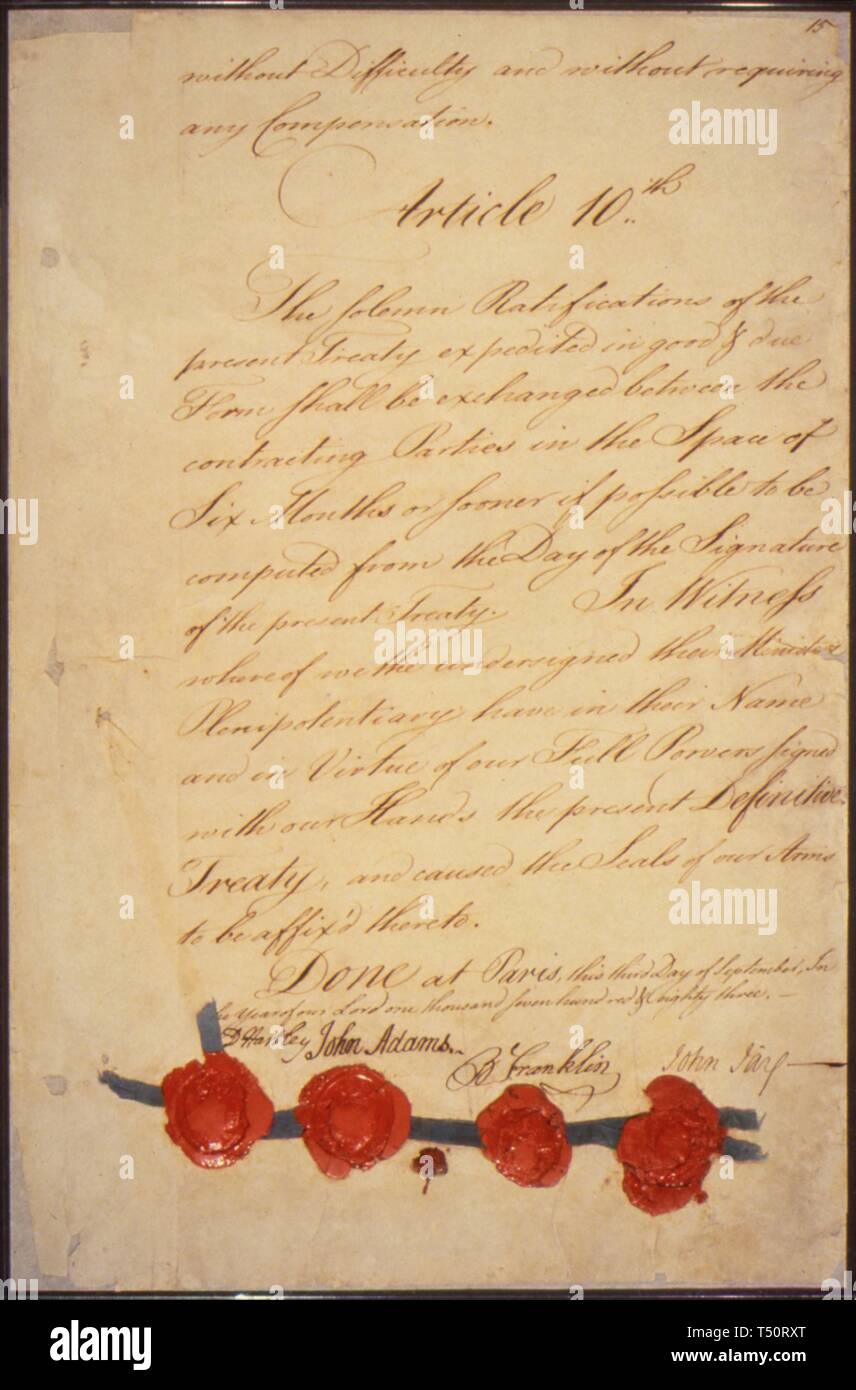 15
without Difficulty and without requiring
any Compensation.
Article 10.th
The solemn Ratifications of the
present Treaty expedited in good & due
Form shall be exchanged between the
contracting Parties in the Space of
Six Months or sooner if possible to be
computed from the Day of the Signature
of the present Treaty. In Witness
whereof we the undersigned their Ministers
Plenipotentiary have in their Name
and in Virtue of our Full Powers signed
with our Hands the present Definitive
Treaty, and caused the Seals of our Arms
to be affix'd thereto.
Done at Paris, this third Day of September, In
the Year of our Lord one thousand seven hundred & eighty three. —
D Hartley John Adams. B Franklin John Jay —
a
alamy
alamy
alamy
a alamy stock photo
Image ID: T50RXT
www.alamy.com